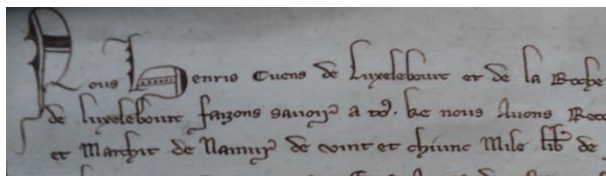 Nous Henris Cuens de Luxelebourc et de la Roche
de luxelebourc faizons savoir a tos. ke nous Avons Rec
et Marchit de Namur de vint et chiunc Mile lib de